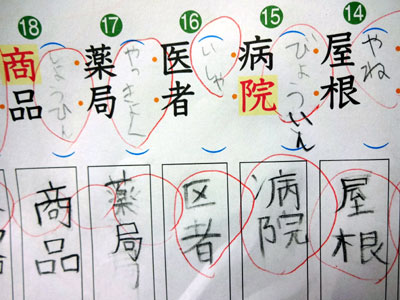 14
屋根
やね
15
病院
びょういん
16
医者
いしゃ
17
薬局
やっきょく
18
商品
しょうひん
屋根
病院
区者
薬局
商品